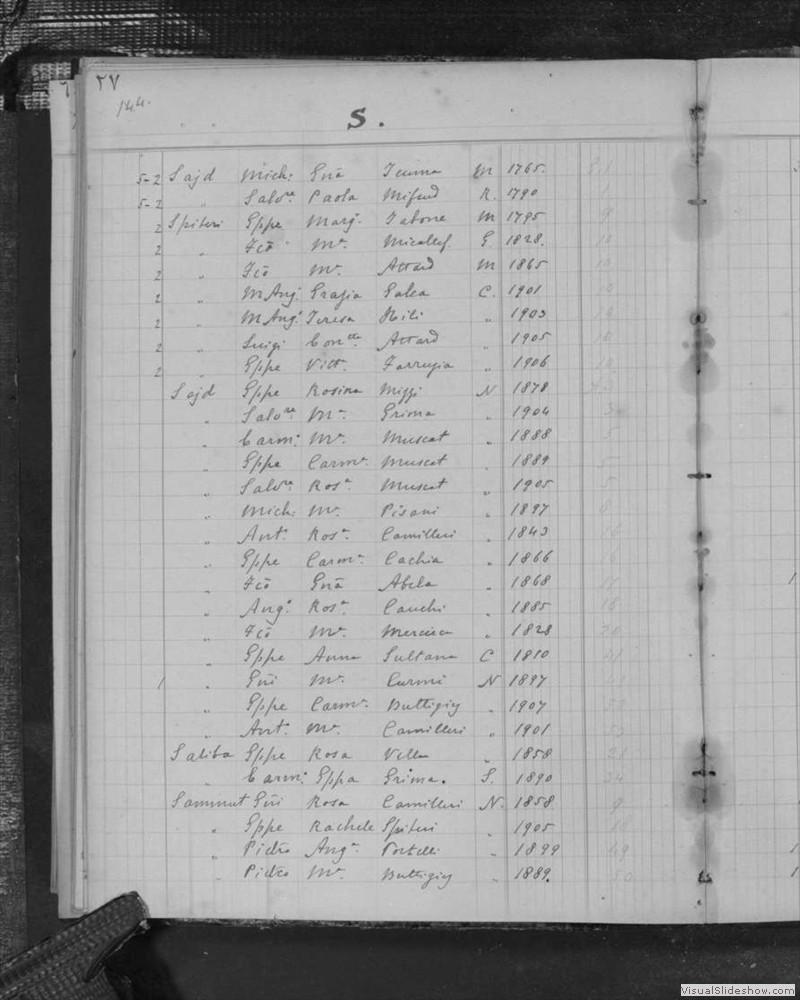 ٢٧
144.
S.
5-2 Sajd Mich: Gnã M 1765.
5-2 " Salvre Paola Mifsud R. 1790
2 Spiteri Gppe Marg. Tabone M 1795
2 " Fcõ Ma. Micallef. G. 1828.
2 " Fcõ Ma. Attard M 1865
2 " M Ang. Grazia Galea C. 1901
2 " M Ang. Teresa " 1903
2 " Luigi Concetta Attard " 1905
2 " Gppe Vitt. Farrugia " 1906
Sajd Gppe Rosina Mizzi N 1878
" Salvre Ma. Grima " 1904
" Carm. Ma. Muscat " 1888
" Gppe Carma. Muscat " 1889
" Salvre Rosa. Muscat " 1905
" Mich: Ma. Pisani " 1897
" Ant. Rosa. Camilleri " 1843
" Gppe Carma. Cachia " 1866
" Fcõ Gnã Abela " 1868
" Ang. Rosa. Cauchi " 1885
" Fcõ Ma. Mercieca " 1828
" Gppe Anna Sultana C 1810
1 " Gñi Ma. Curmi N 1897
" Gppe Carma. Buttigieg " 1907
" Ant. Ma. Camilleri " 1901
Saliba Gppe Rosa Vella " 1858
" Carm. Gppa Grima. S. 1890
Sammut Gñi Rosa Camilleri N. 1858
" Gppe Rachele Spiteri " 1905
" Pietro Anga. Portelli " 1899
" Pietro Ma. Buttigieg " 1889.
VisualSlideshow.com